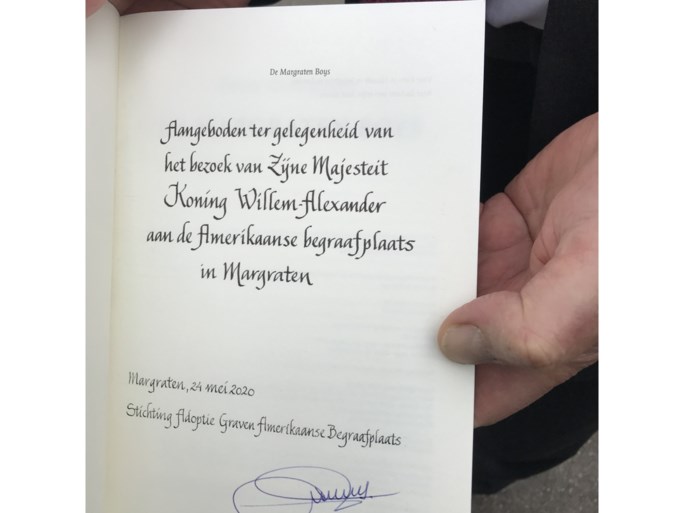 De Margraten Boys
Aangeboden ter gelegenheid van
het bezoek van Zijne Majesteit
Koning Willem-Alexander
aan de Amerikaanse begraafplaats
in Margraten
Margraten, 24 mei 2020
Stichting Adoptie Graven Amerikaanse Begraafplaats